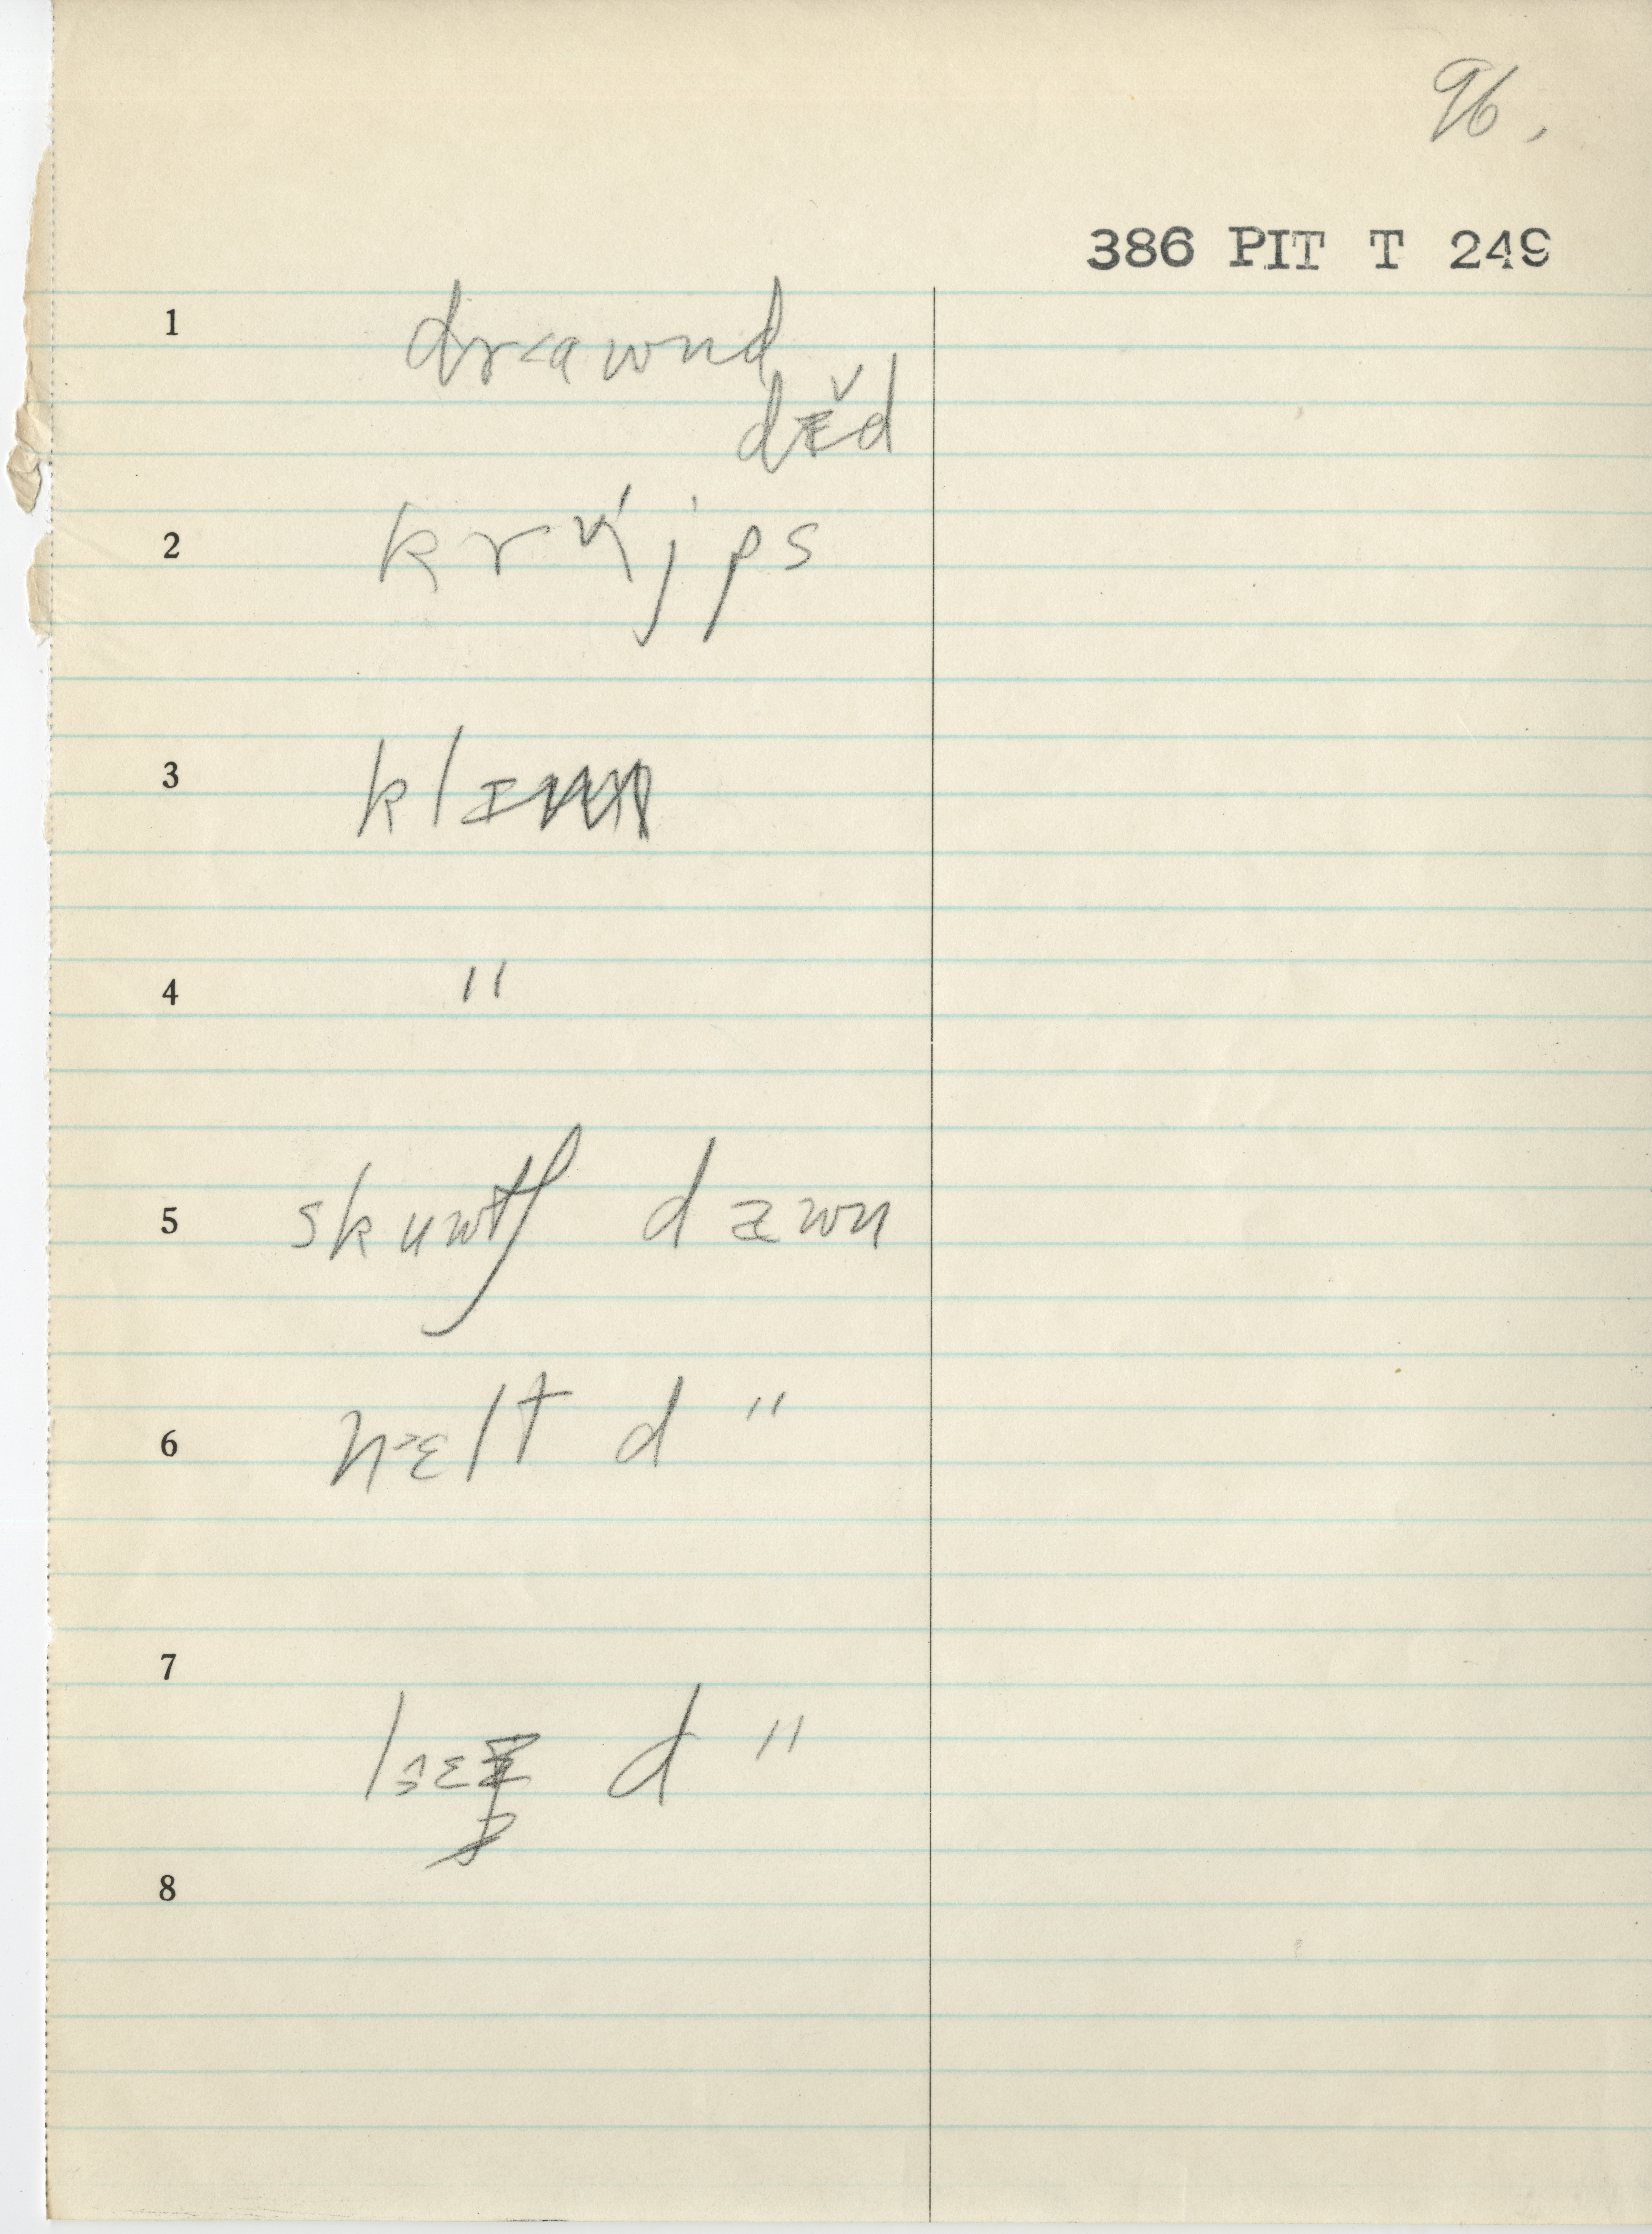 96.
386 PIT T 249
1 dr˂awnd
dɪ̌d
2 krʌ́jps
3 klɪm
4 "
5 skuwtʃ dæwn
6 n˃ɛlt d "
7 d "
8